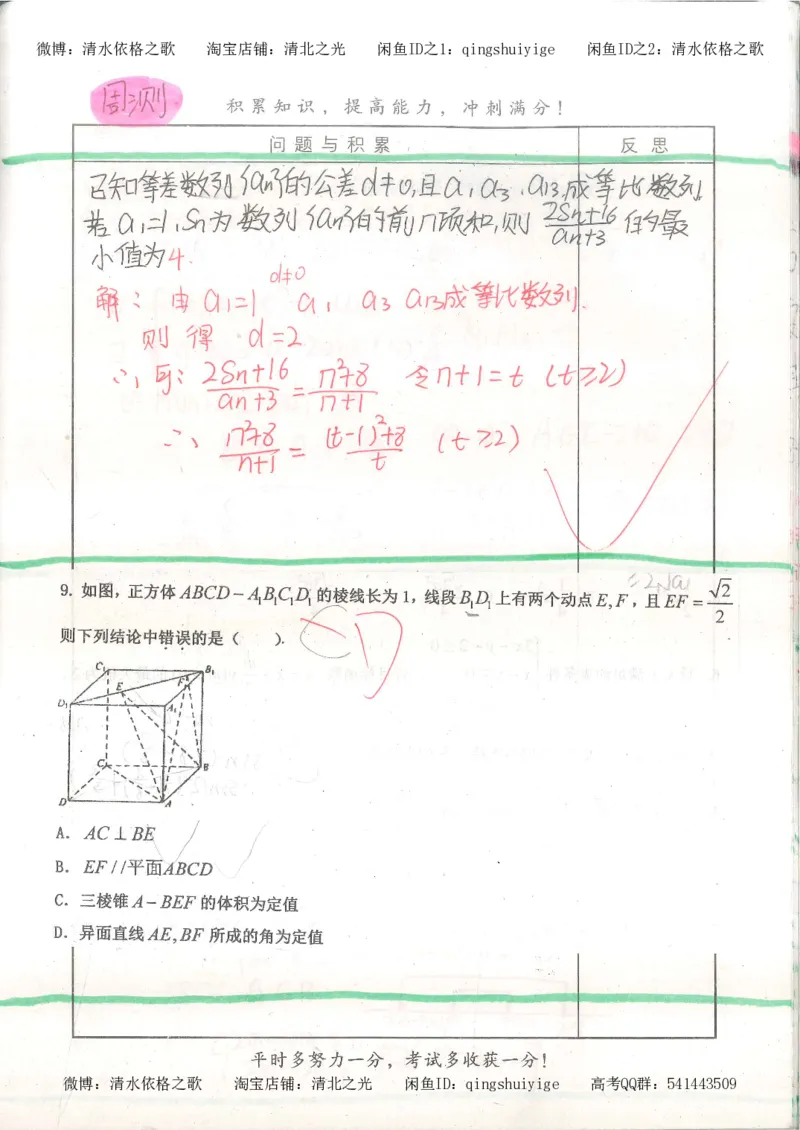 微博：清水依格之歌 淘宝店铺：清北之光 闲鱼ID之1：qingshuiyige 闲鱼ID之2：清水依格之歌
周测
积累知识，提高能力，冲刺满分！
问题与积累 反思
已知等差数列{an}的公差d≠0,且a₁,a₃,a₁₃成等比数列.
若a₁=1,Sn为数列{an}的前n项和,则 (2Sn+16)/(an+3) 的最
小值为4.
解：由a₁=1 d≠0 a₁ a₃ a₁₃成等比数列.
则得 d=2
∴ 原: (2Sn+16)/(an+3) = (n²+8)/(n+1) 令n+1=t (t≥2)
∴ (n²+8)/(n+1) = ((t-1)²+8)/t (t≥2)
9. 如图，正方体ABCD－A₁B₁C₁D₁的棱线长为1，线段B₁D₁上有两个动点E,F，且EF=√2/2
则下列结论中错误的是（ ）. D
C₁ B₁
E F
D₁ A₁
C B
D A
A. AC⊥BE
B. EF//平面ABCD
C. 三棱锥A－BEF的体积为定值
D. 异面直线AE,BF所成的角为定值
平时多努力一分，考试多收获一分！
微博：清水依格之歌 淘宝店铺：清北之光 闲鱼ID：qingshuiyige 高考QQ群：541443509